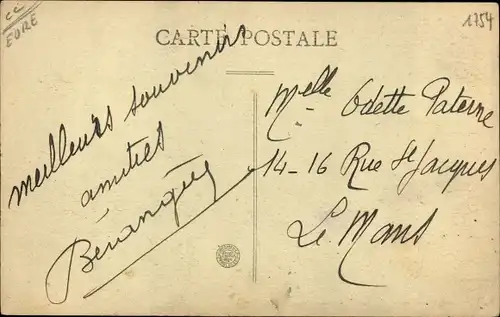 CC
EURE
1754
CARTE POSTALE
meilleurs souvenirs
amitiés
Bérangère
Melle Odette Paterne
14-16 Rue St Jacques
Le Mans